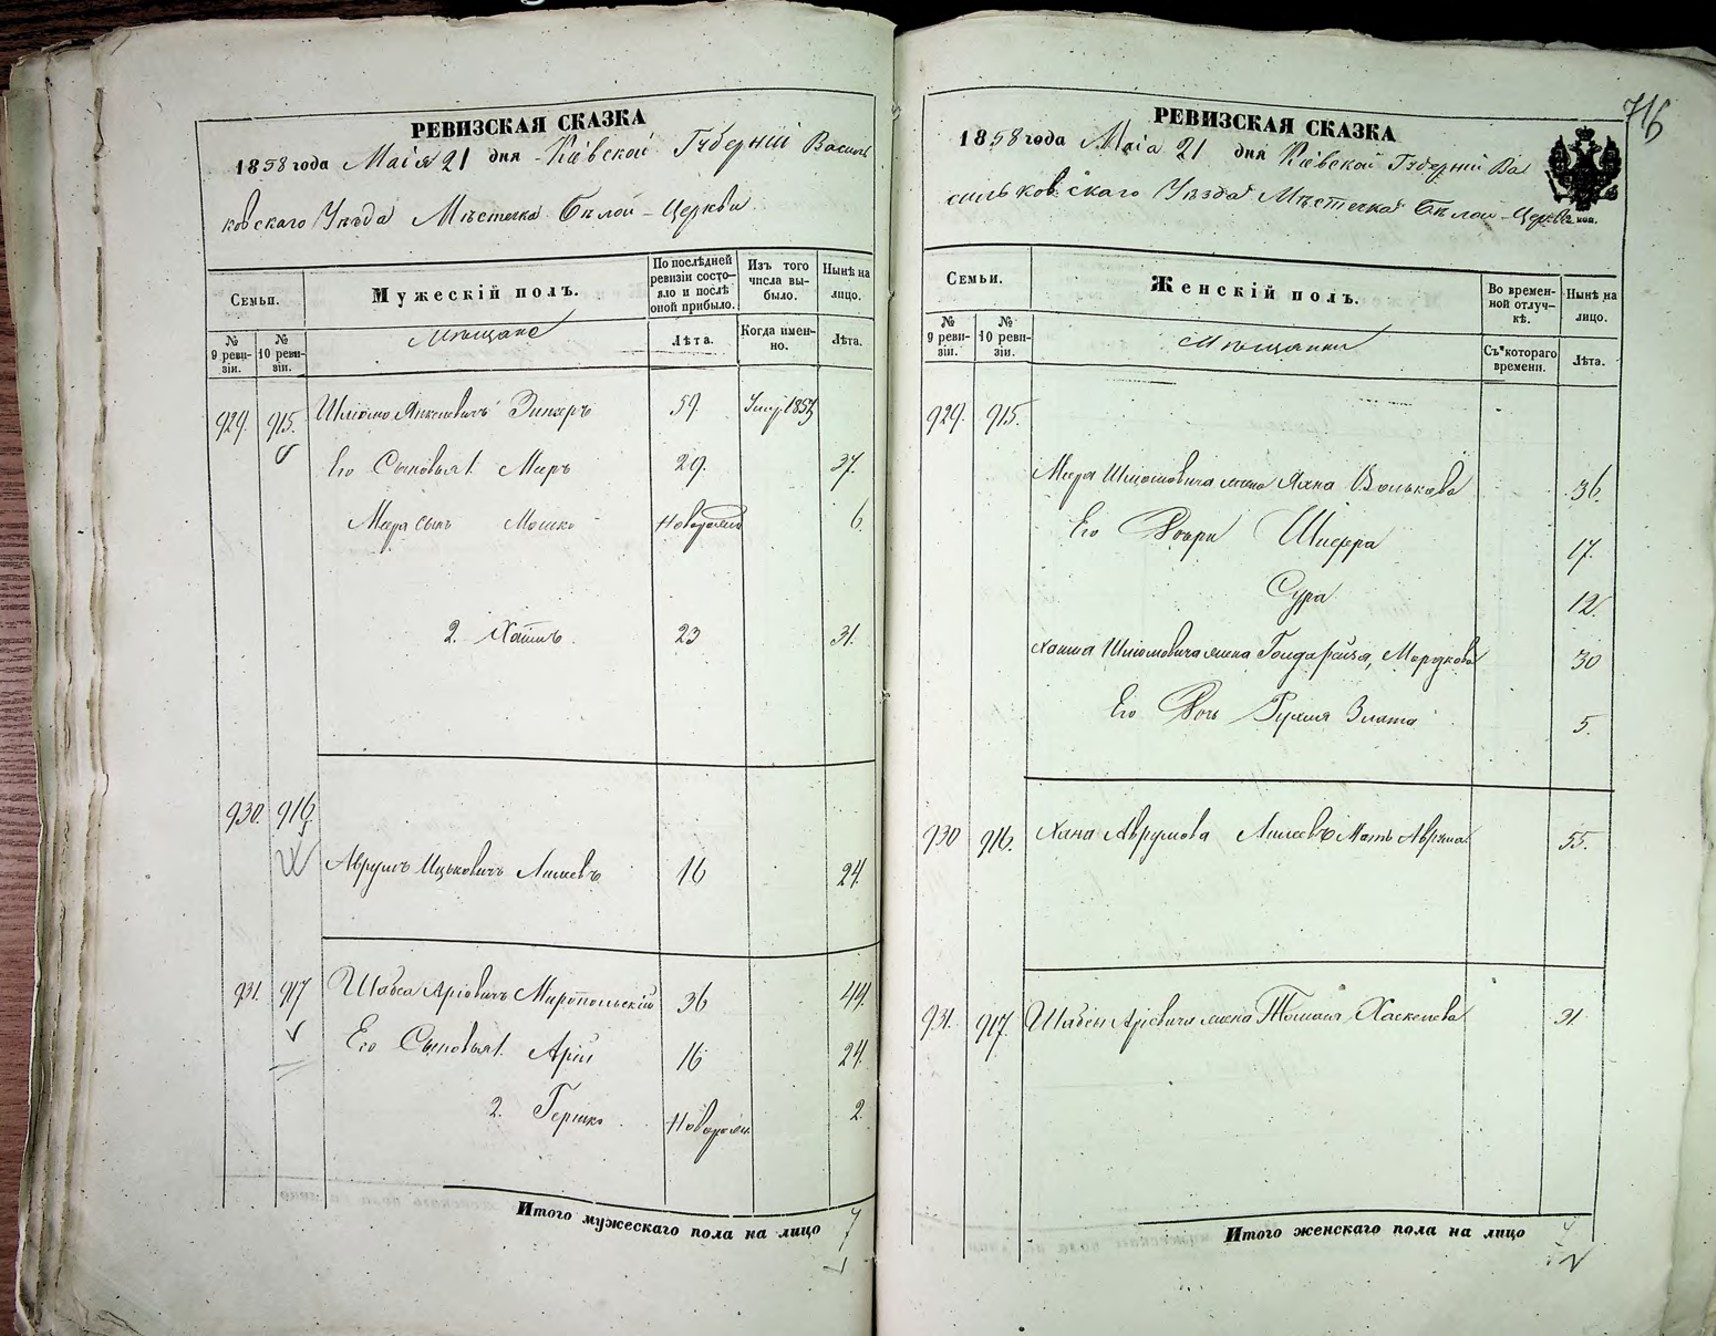 РЕВИЗСКАЯ СКАЗКА
1858 года Маія 21 дня Кіевской Губерніи Василь
ковскаго Уѣзда Мѣстечка Бѣлой-Церкви
Семьи.
Мужескій полъ.
По послѣдней ревизіи состояло и послѣ оной прибыло.
Изъ того числа выбыло.
Нынѣ на лицо.
№ 9 ревизіи.
№ 10 ревизіи.
Мѣщане
Лѣта.
Когда именно.
Лѣта.
929. 915. Шліомо Янкелевичъ 59. 
Его Сыновья 1. Меръ 29. 37.
Мера сынъ Мошко Новорожд 6.
2. Хаимъ 23 31.
930. 916.
Аврумъ Ицьковичъ 16 24.
931. 917 Шабса Аріовичъ Миропольскій 36 44.
Его Сыновья 1. Арій 16 24.
2. Гершко Новорожд. 2.
Итого мужескаго пола на лицо 7
716
РЕВИЗСКАЯ СКАЗКА
1858 года Маія 21 дня Кіевской Губерніи Ва
сильковскаго Уѣзда Мѣстечка Бѣлой-Церкви
Семьи.
Женскій полъ.
Во временной отлучкѣ.
Нынѣ на лицо.
№ 9 ревизіи.
№ 10 ревизіи.
Мѣщанки
Съ котораго времени.
Лѣта.
929. 915.
Мера Шліомовича жена Волькова 36.
Его Дочери Шифра 17.
Сура 12
Хаима Шліомовича жена Мордкова 30
Его Дочь Злата 5.
930 916. Хана Аврумова Мать Аврума 55.
931. 917. Аріовича жена Хаскелева 31.
Итого женскаго пола на лицо